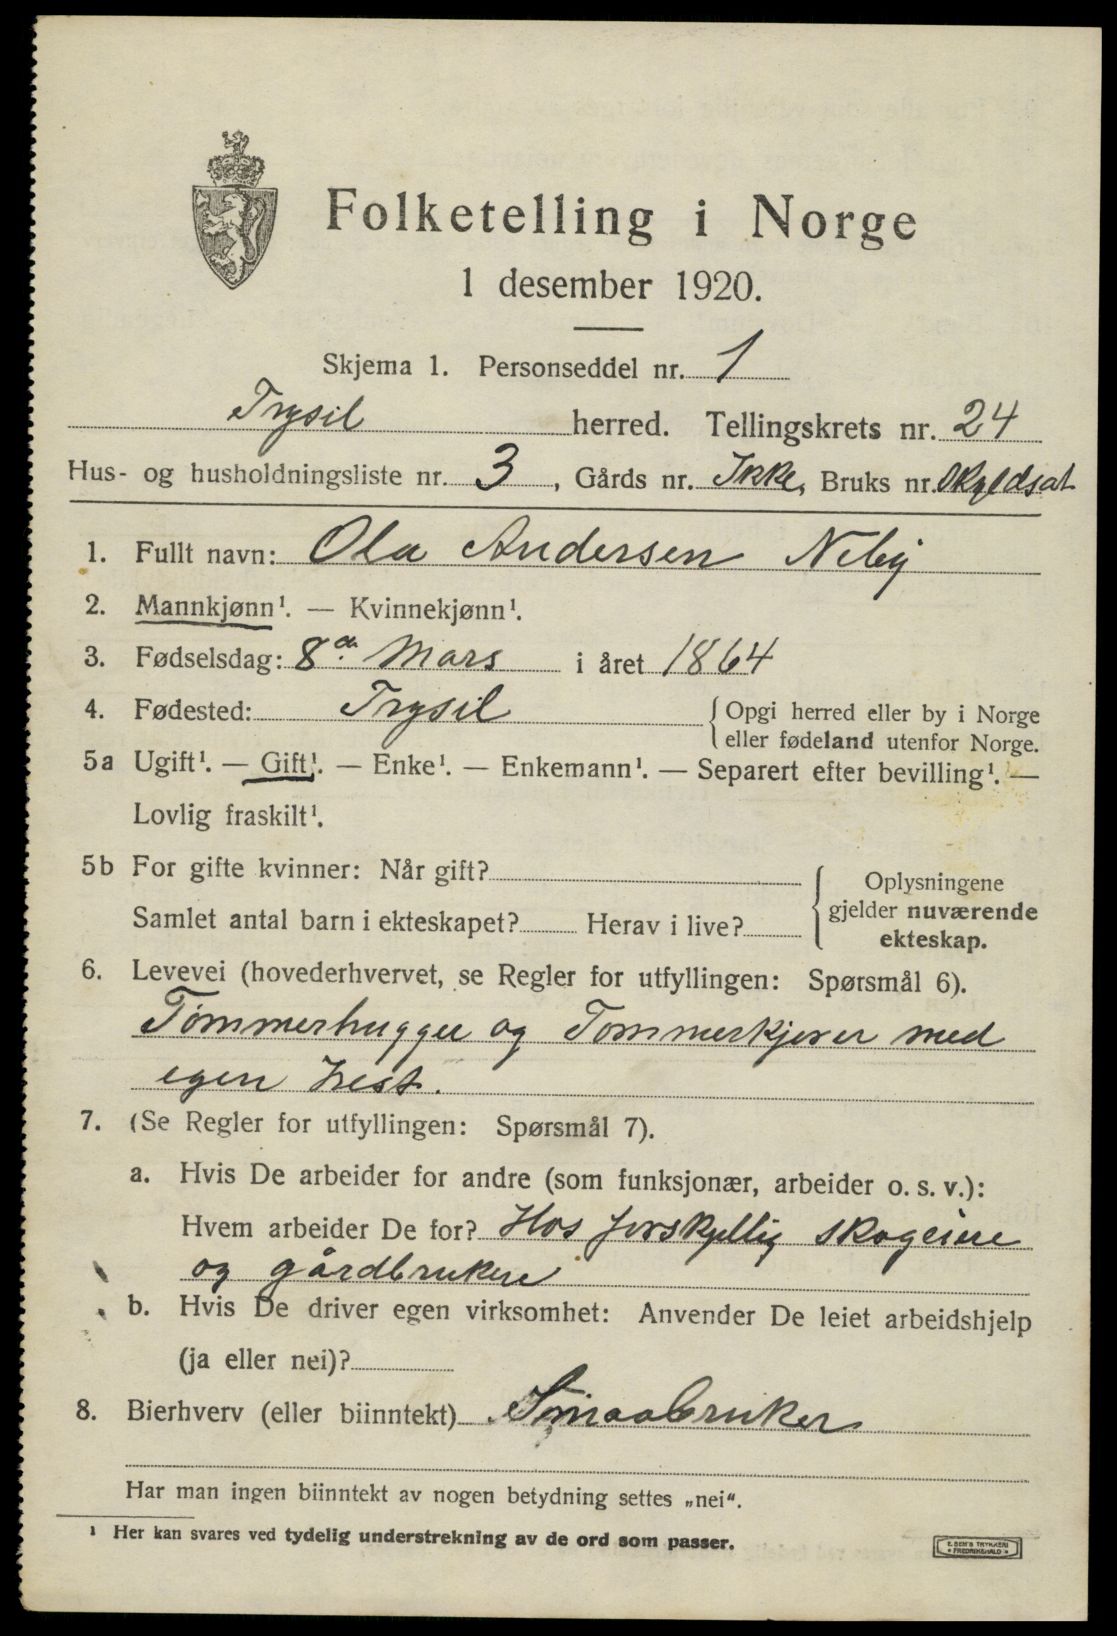 Folketelling i Norge
1 desember 1920.
Skjema 1. Personseddel nr. 1
Trysil herred. Tellingskrets nr. 24
Hus- og husholdningsliste nr. 3, Gårds nr. Ikke, Bruks nr. Skyldsat
1. Fullt navn: Ola Andersen Neby
2. Mannkjønn¹. — Kvinnekjønn¹.
3. Fødselsdag: 8de Mars i året 1864
4. Fødested: Trysil Opgi herred eller by i Norge
eller fødeland utenfor Norge.
5a Ugift¹. — Gift¹. — Enke¹. — Enkemann¹. — Separert efter bevilling¹. —
Lovlig fraskilt¹.
5b For gifte kvinner: Når gift? Oplysningene
gjelder nuværende
Samlet antal barn i ekteskapet? Herav i live?
ekteskap.
6. Levevei (hovederhvervet, se Regler for utfyllingen: Spørsmål 6).
Tømmerhugger og Tømmerkjører med
egen Hest.
7. (Se Regler for utfyllingen: Spørsmål 7).
a. Hvis De arbeider for andre (som funksjonær, arbeider o. s. v.):
Hvem arbeider De for? Hos forskjellig skogeiere
og gårdbrukere
b. Hvis De driver egen virksomhet: Anvender De leiet arbeidshjelp
(ja eller nei)?
8. Bierhverv (eller biinntekt) Smaabruker
Har man ingen biinntekt av nogen betydning settes „nei“.
¹ Her kan svares ved tydelig understrekning av de ord som passer.
E. SEM'S TRYKKERI
FREDRIKSHALD